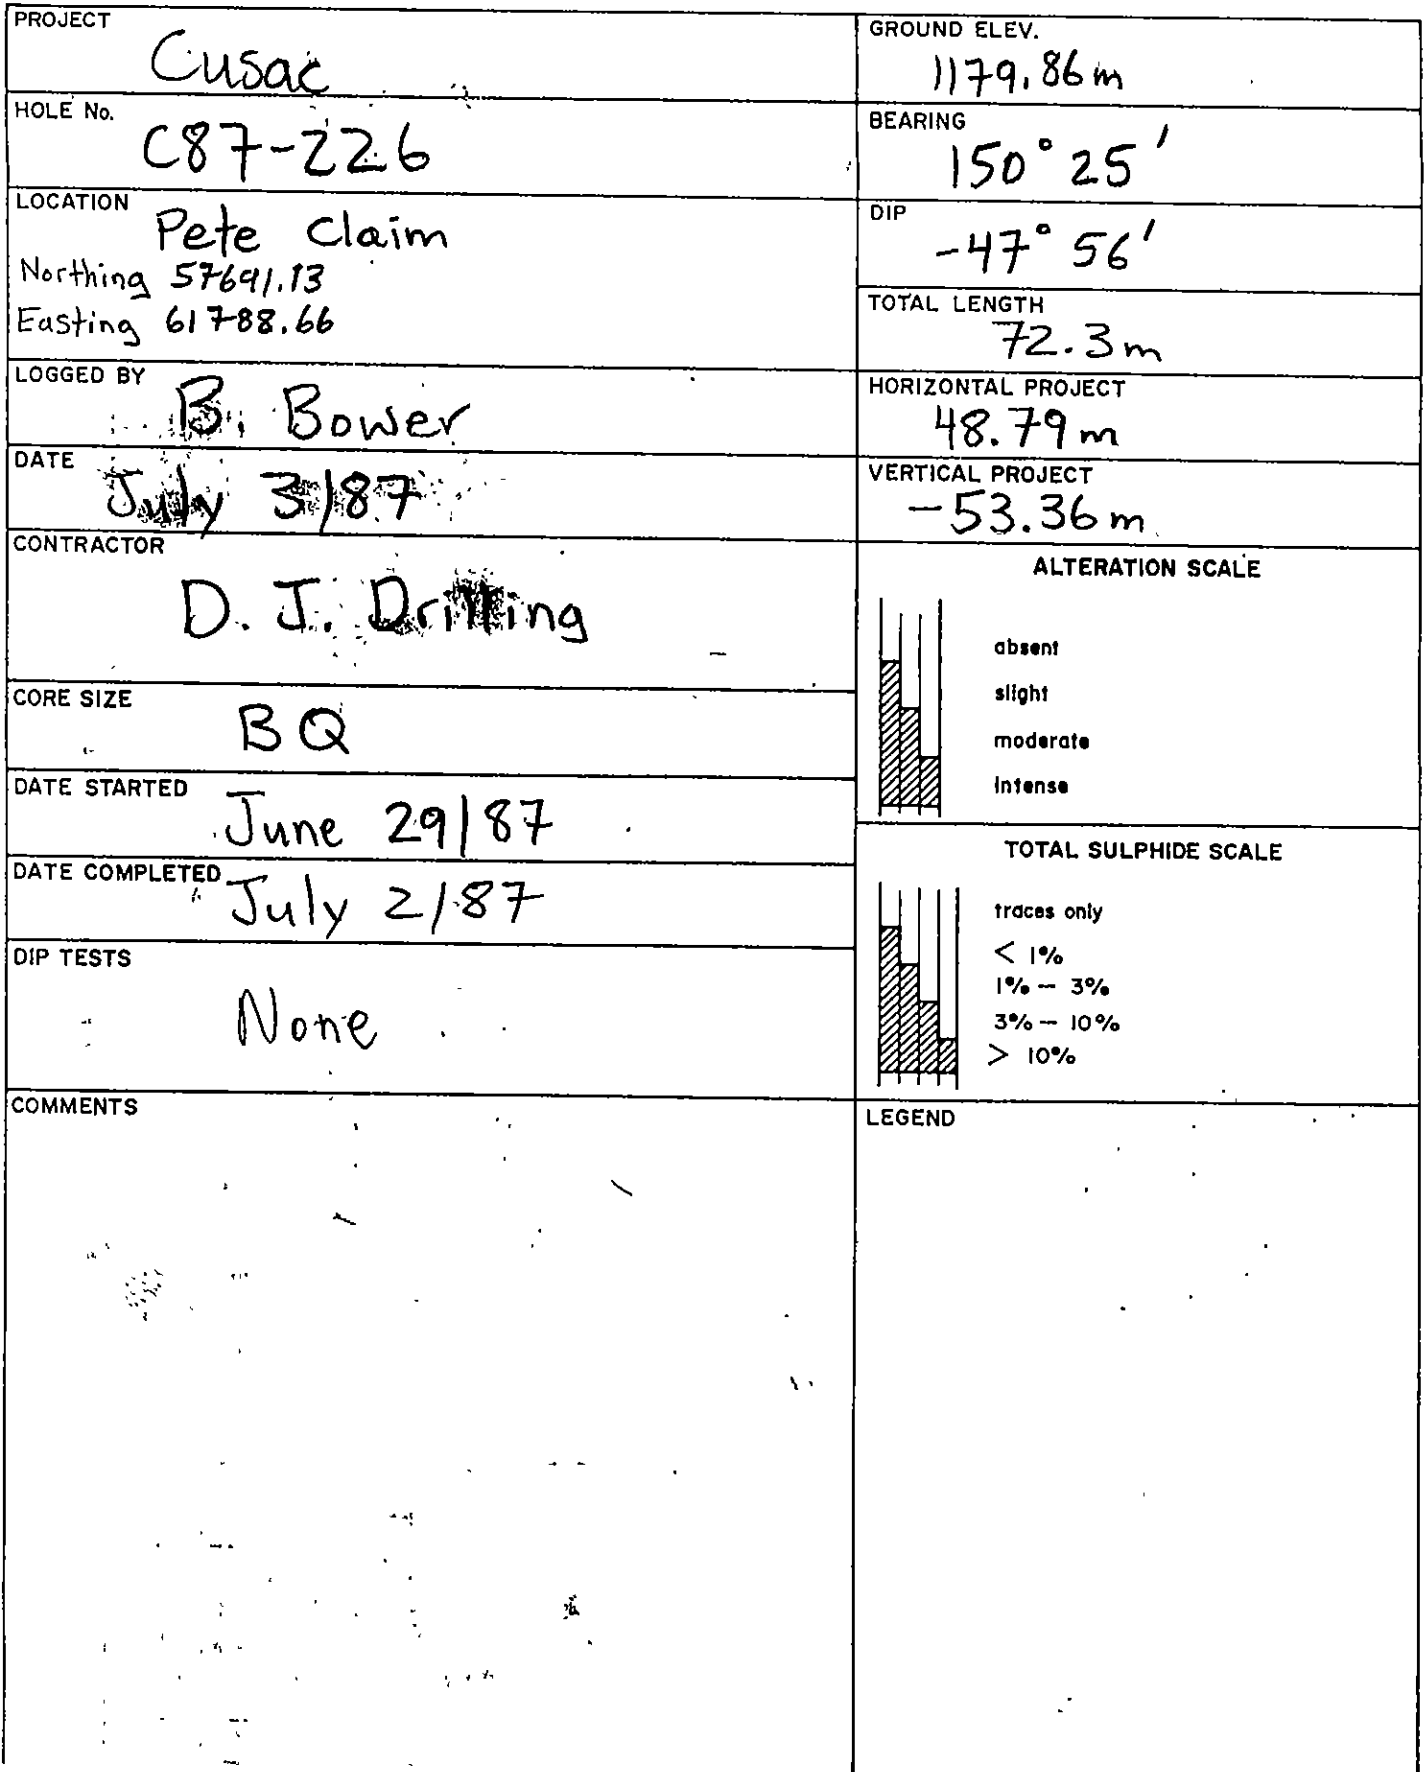 PROJECT
Cusac
HOLE No.
C87-226
LOCATION
Pete Claim
Northing 57691.13
Easting 61788.66
LOGGED BY
B. Bower
DATE
July 3/87
CONTRACTOR
D. J. Drilling
CORE SIZE
BQ
DATE STARTED
June 29/87
DATE COMPLETED
July 2/87
DIP TESTS
None
COMMENTS
GROUND ELEV.
1179.86 m
BEARING
150° 25'
DIP
-47° 56'
TOTAL LENGTH
72.3 m
HORIZONTAL PROJECT
48.79 m
VERTICAL PROJECT
-53.36 m
ALTERATION SCALE
absent
slight
moderate
intense
TOTAL SULPHIDE SCALE
traces only
< 1%
1% - 3%
3% - 10%
> 10%
LEGEND